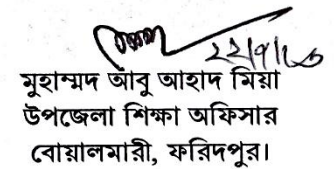 মুহাম্মদ আবু আহাদ মিয়া
উপজেলা শিক্ষা অফিসার
বোয়ালমারী, ফরিদপুর।